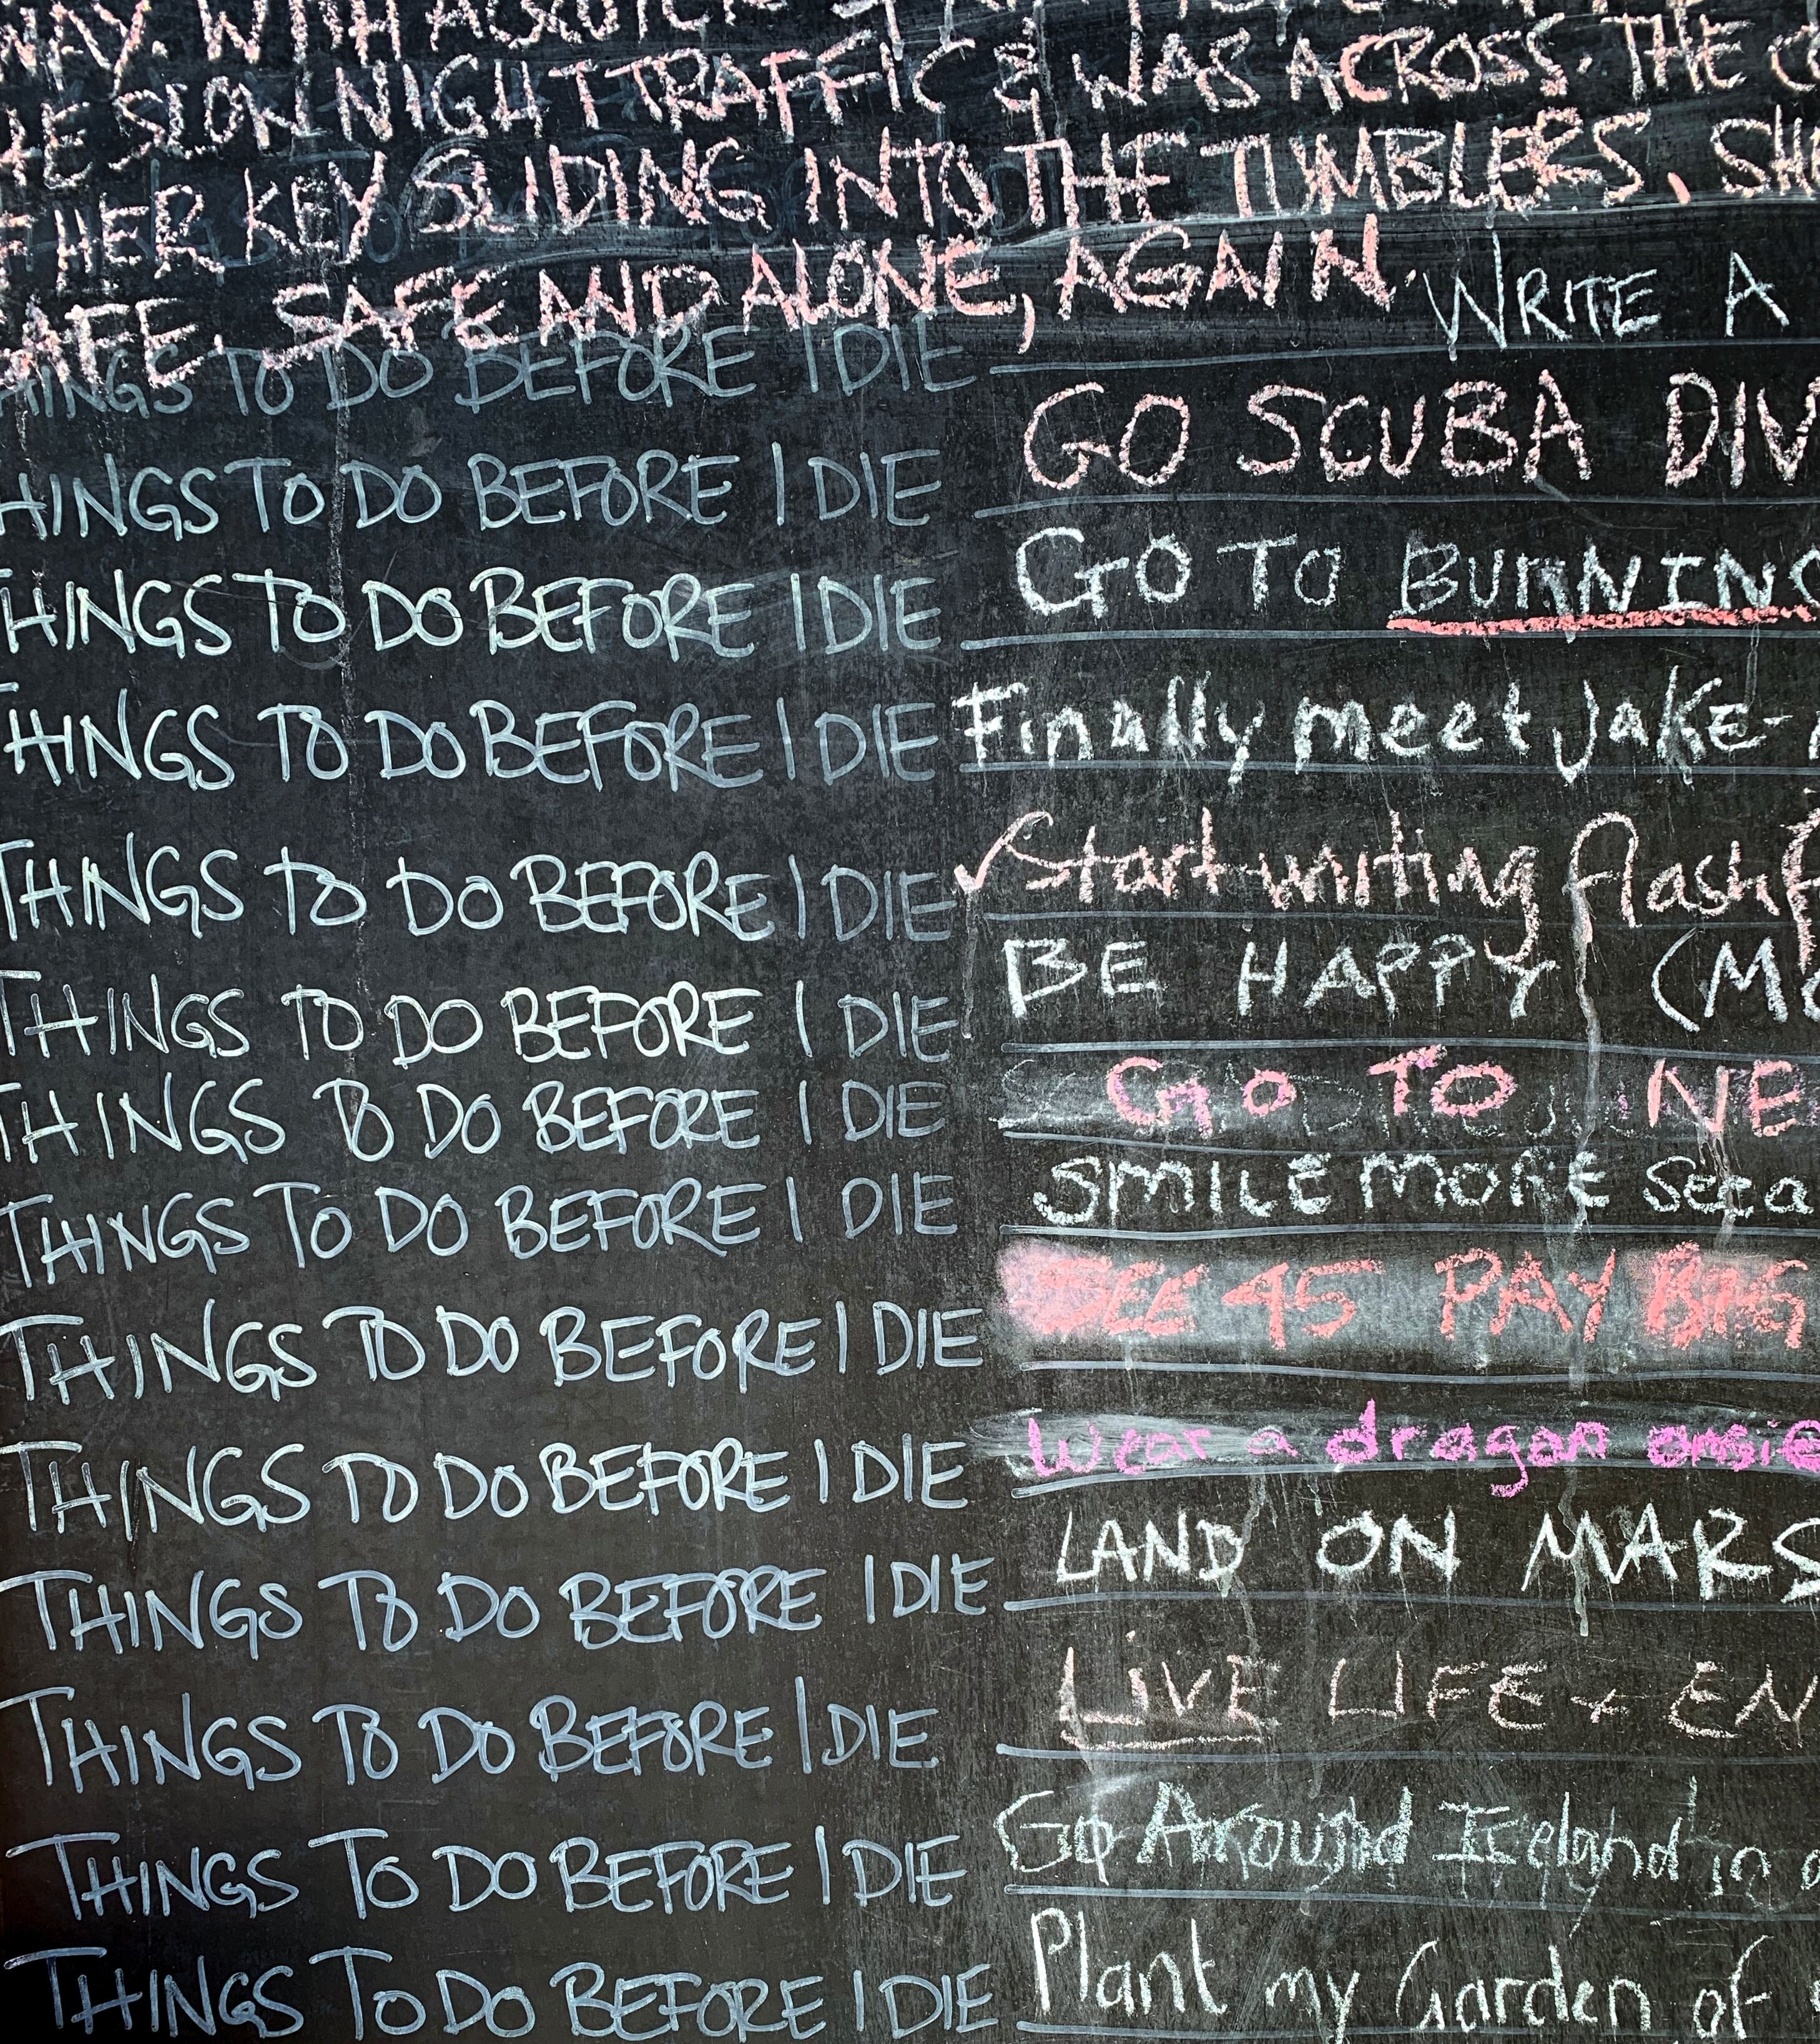 WAY. WITH A QUICK
SLOW NIGHT TRAFFIC & WAS ACROSS. THE
HER KEY SLIDING INTO THE TUMBLERS. SH
AFE. SAFE AND ALONE, AGAIN.
HINGS TO DO BEFORE I DIE WRITE A
HINGS TO DO BEFORE I DIE GO SCUBA DIV
THINGS TO DO BEFORE I DIE GO TO BURNING
THINGS TO DO BEFORE I DIE Finally meet Jake-
THINGS TO DO BEFORE I DIE ✓ Start writing flash f
THINGS TO DO BEFORE I DIE BE HAPPY (MO
THINGS TO DO BEFORE I DIE GO TO NE
THINGS TO DO BEFORE I DIE SMILE MORE
THINGS TO DO BEFORE I DIE SEE 45 PAY
THINGS TO DO BEFORE I DIE Wear a dragon onsie
THINGS TO DO BEFORE I DIE LAND ON MARS
THINGS TO DO BEFORE I DIE LIVE LIFE + EN
THINGS TO DO BEFORE I DIE Go Around Iceland in a
THINGS TO DO BEFORE I DIE Plant my Garden of